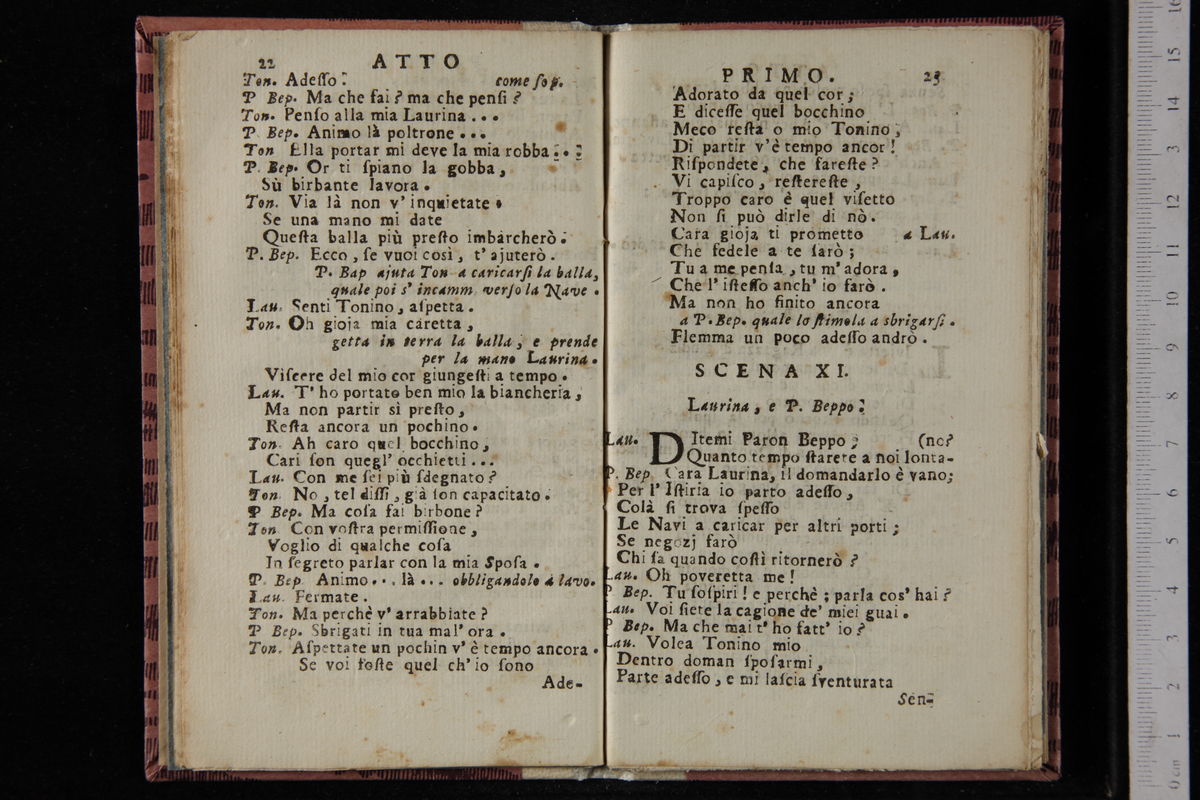 22 ATTO
Ton. Adeſſo. come ſop.
P Bep. Ma che fai? ma che penſi?
Ton. Penſo alla mia Laurina...
P. Bep. Animo là poltrone...
Ton Ella portar mi deve la mia robba...
P. Bep. Or ti ſpiano la gobba,
Sù birbante lavora.
Ton. Via là non v' inquietate.
Se una mano mi date
Queſta balla più preſto imbarcherò.
P. Bep. Ecco, ſe vuoi così, t' ajuterò.
P. Bap ajuta Ton a caricarſi la balla,
quale poi s' incamm verſo la Nave.
Lau. Senti Tonino, aſpetta.
Ton. Oh gioja mia caretta,
getta in terra la balla, e prende
per la mano Laurina.
Viſcere del mio cor giungeſti a tempo.
Lau. T' ho portato ben mio la biancheria,
Ma non partir sì preſto,
Reſta ancora un pochino.
Ton. Ah caro quel bocchino,
Cari ſon quegl' occhietti...
Lau. Con me ſei più ſdegnato?
Ton. No, tel diſſi, già ſon capacitato.
P Bep. Ma coſa fai birbone?
Ton. Con voſtra permiſſione,
Voglio di qualche coſa
In ſegreto parlar con la mia Spoſa.
P. Bep. Animo... là... obbligandolo a lavo.
Lau. Fermate.
Ton. Ma perchè v' arrabbiate?
P Bep. Sbrigati in tua mal' ora.
Ton. Aſpettate un pochin v' è tempo ancora.
Se voi foſte quel ch' io ſono
Ade-
PRIMO. 23
Adorato da quel cor;
E diceſſe quel bocchino
Meco reſta o mio Tonino,
Di partir v'è tempo ancor!
Riſpondete, che fareſte?
Vi capiſco, reſtereſte,
Troppo caro è quel viſetto
Non ſi può dirle di nò.
Cara gioja ti prometto a Lau.
Che fedele a te ſarò;
Tu a me penſa, tu m' adora,
Che l' iſteſſo anch' io farò.
Ma non ho finito ancora
a P. Bep. quale lo ſtimola a sbrigarſi.
Flemma un poco adeſſo andrò.
SCENA XI.
Laurina, e P. Beppo.
Lau. DItemi Paron Beppo; (no?
Quanto tempo ſtarete a noi lonta-
P. Bep. Cara Laurina, il domandarlo è vano;
Per l' Iſtiria io parto adeſſo,
Colà ſi trova ſpeſſo
Le Navi a caricar per altri porti;
Se negozj farò
Chi ſa quando coſtì ritornerò?
Lau. Oh poveretta me!
P Bep. Tu ſoſpiri! e perchè; parla cos' hai?
Lau. Voi ſiete la cagione de' miei guai.
P Bep. Ma che mai t' ho fatt' io?
Lau. Volea Tonino mio
Dentro doman ſpoſarmi,
Parte adeſſo, e mi laſcia ſventurata
Sen-